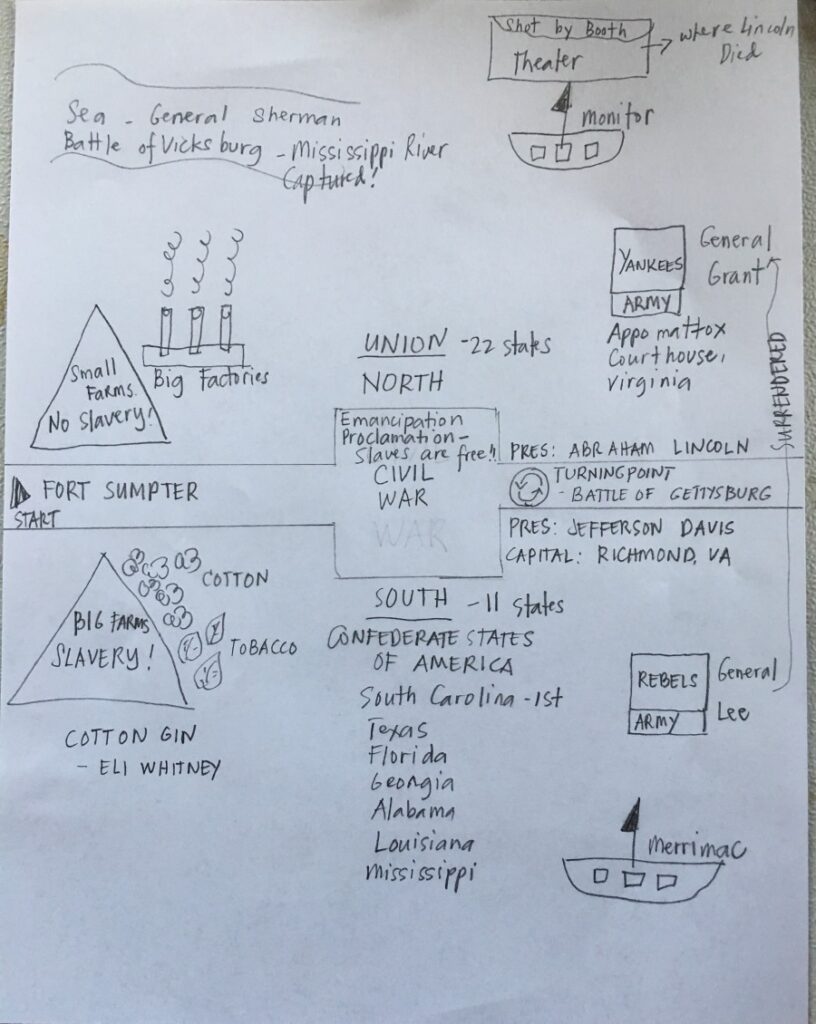 Shot by Booth
Theater
where Lincoln
Died
monitor
Sea - General Sherman
Battle of Vicksburg - Mississippi River
Captured!
YANKEES
ARMY
General
Grant
Appomattox
Courthouse,
Virginia
SURRENDERED
Small
FARMS.
No Slavery!
Big Factories
UNION - 22 states
NORTH
Emancipation
Proclamation -
Slaves are free!!
CIVIL
WAR
WAR
PRES: ABRAHAM LINCOLN
TURNINGPOINT
- BATTLE OF GETTYSBURG
FORT SUMPTER
START
PRES: JEFFERSON DAVIS
CAPITAL: RICHMOND, VA
COTTON
TOBACCO
BIG FARMS
SLAVERY!
COTTON GIN
- ELI WHITNEY
SOUTH - 11 states
CONFEDERATE STATES
OF AMERICA
South Carolina - 1st
Texas
Florida
Georgia
Alabama
Louisiana
Mississippi
REBELS
ARMY
General
Lee
Merrimac